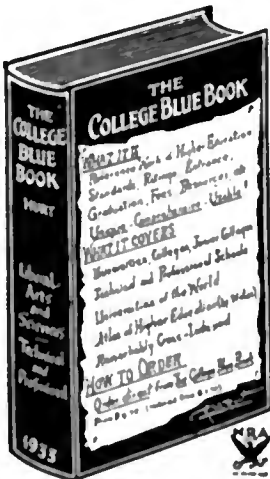 THE
COLLEGE
BLUE
BOOK
HURT
Liberal
Arts
and
Sciences
Technical
and
Professional
1933
THE
COLLEGE BLUE BOOK
WHAT IT IS
of Higher Education
Standards, Ratings, Entrance,
Graduation, Fees, Resources, etc
Unique - Comprehensive - Usable!
WHAT IT COVERS
Universities, Colleges, Junior Colleges
Technical and Professional Schools
Universities of the World
Atlas of Higher Education
Remarkably Cross-Indexed
HOW TO ORDER
Order direct from The College Blue Book
NRA